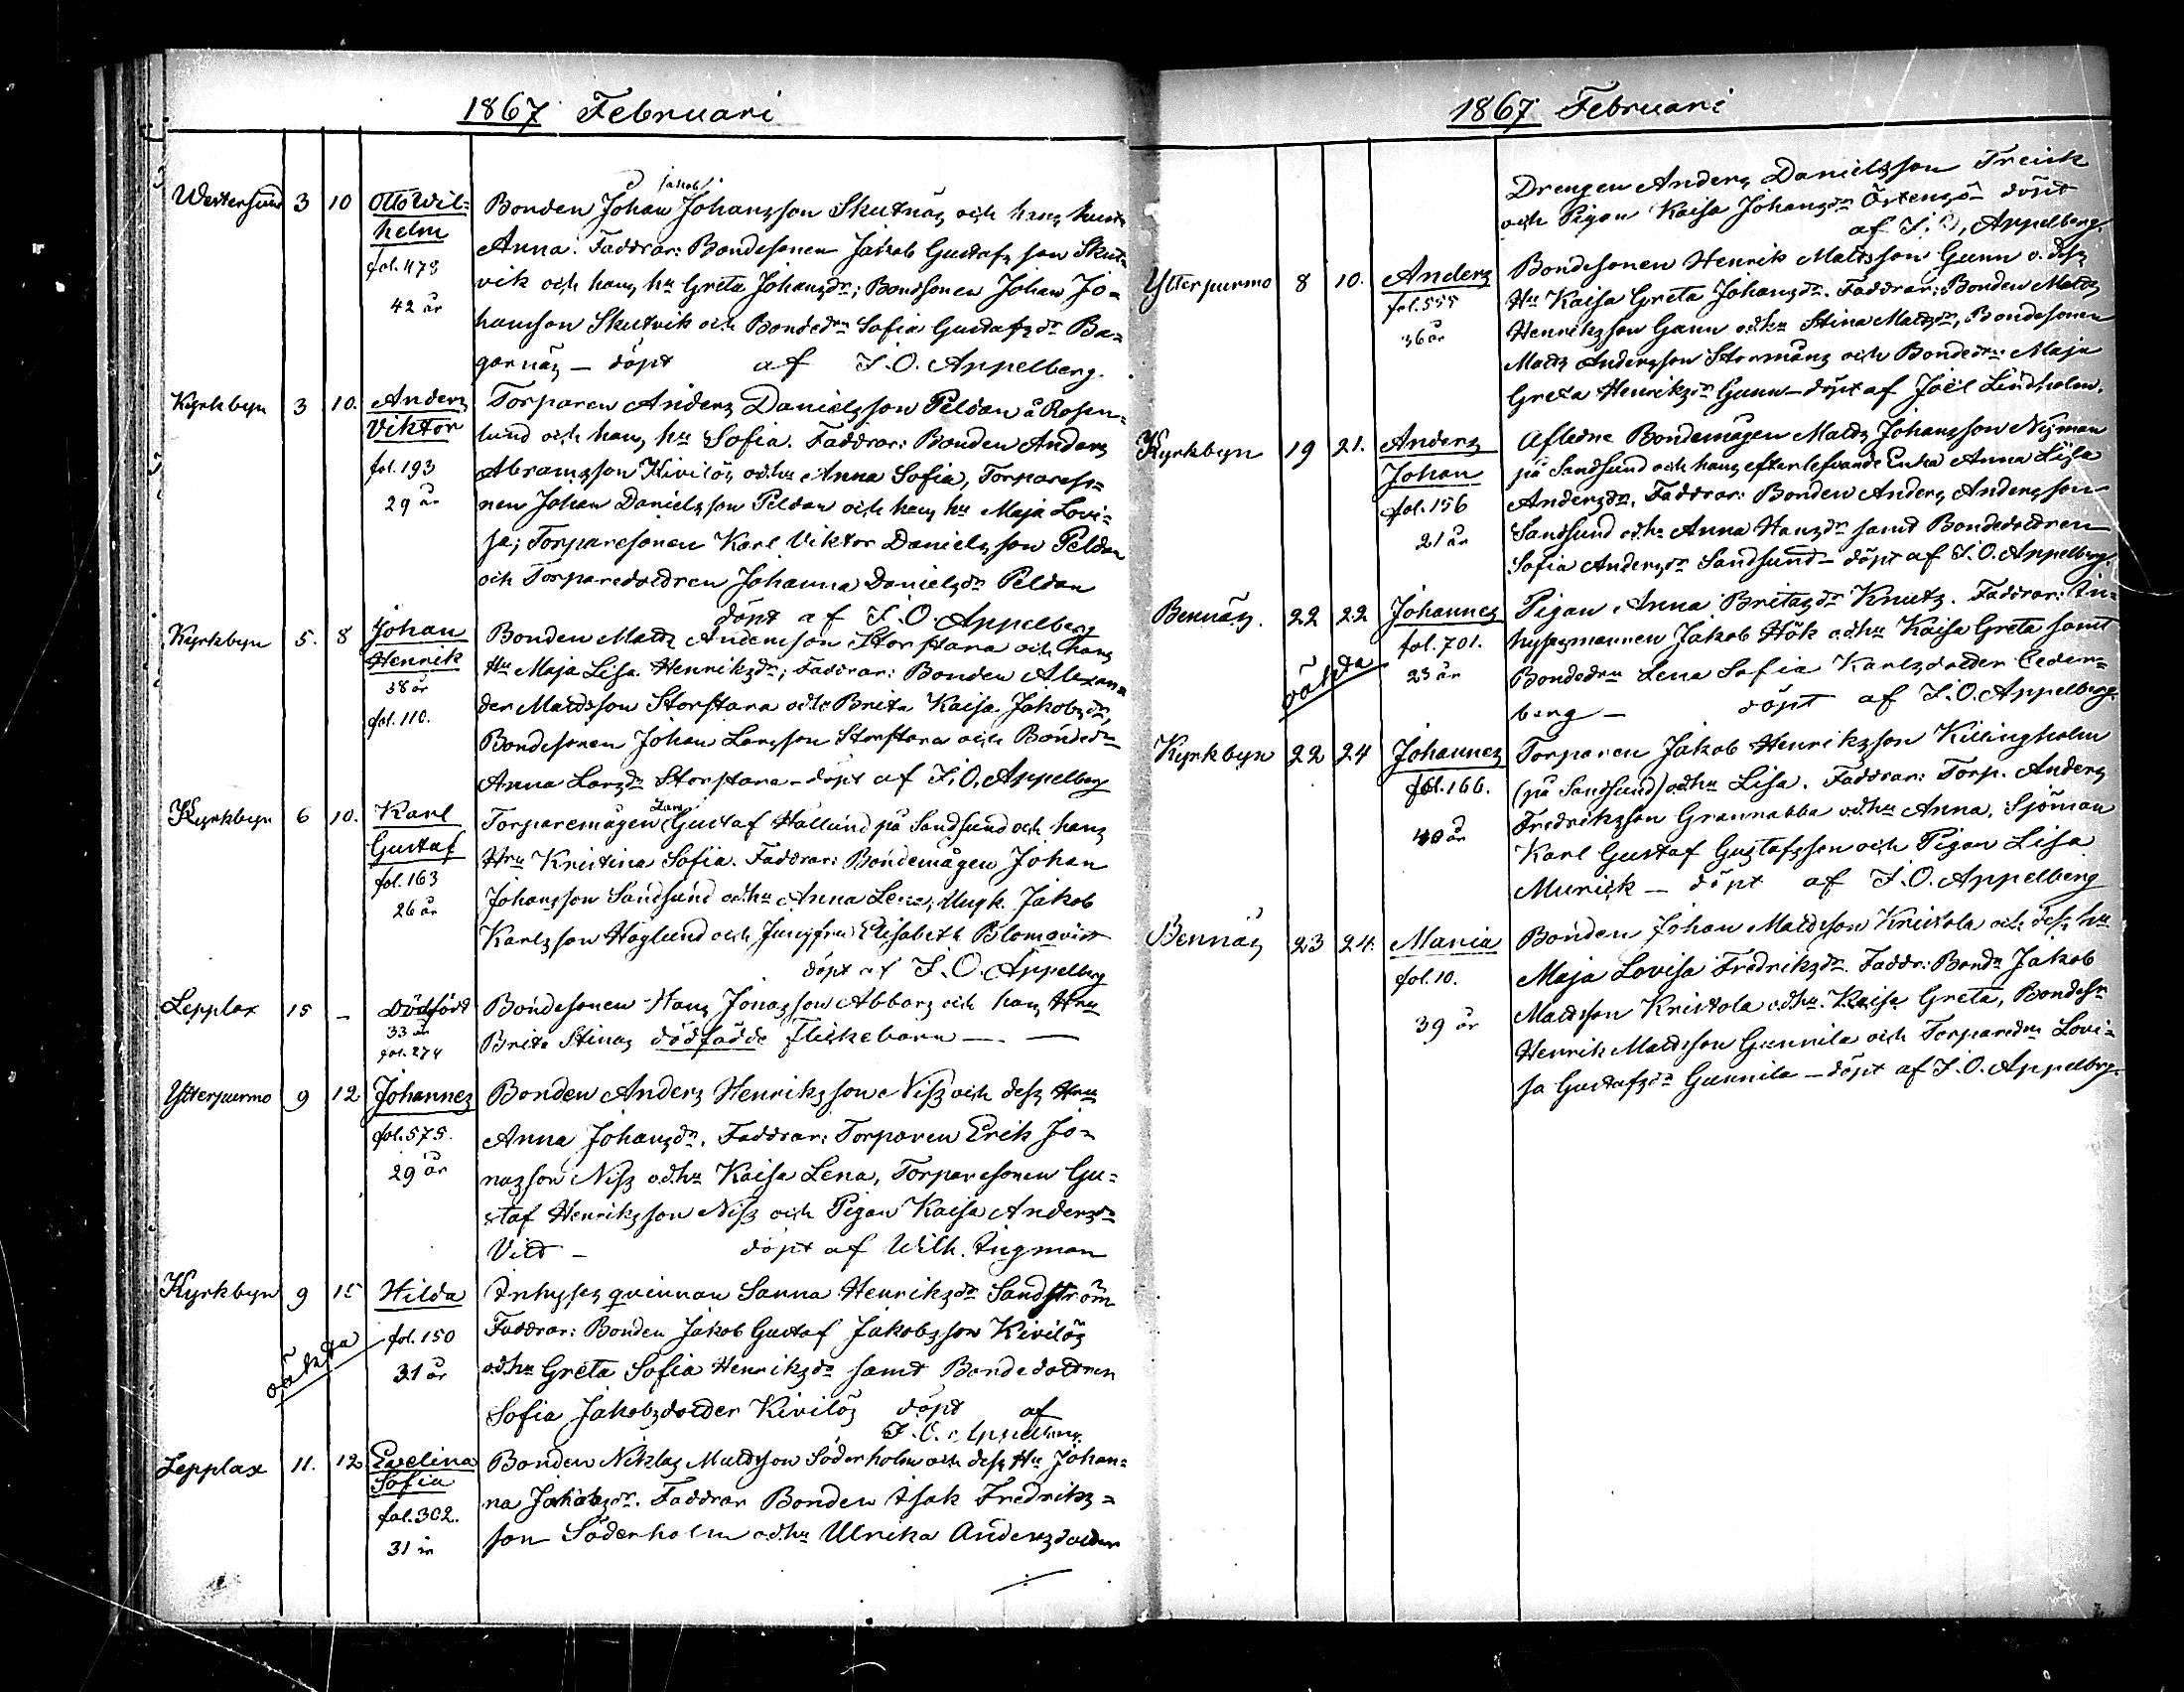 1867 Februari
Westersund 3 10 Otto Wil=
helm
fol. 478
42 år
Jakob
Bonden Johan Johansson Skutnäs och hans hustru
Anna. Faddrar: Bondesonen Jakob Gustafsson Skut=
vik och hans hu Greta Johansdr; Bondsonen Johan Jo=
hansson Skutvik och Bondedrn Sofia Gustafsdr Ba=
garnäs – döpt af J. O. Appelberg.
Kyrkbyn 3 10. Anders
Viktor
fol. 193
29 år
Torparen Anders Danielsson Peldan å Rosen=
lund och hans hu Sofia. Faddrar: Bonden Anders
Abramsson Kivilös o. d. hu Anna Sofia, Torpareso=
nen Johan Danielsson Peldan och hans hu Maja Lovi=
sa; Torparesonen Karl Viktor Danielsson Peldan
och Torparedottren Johanna Danielsdr Peldan
döpt af J. O. Appelberg
Kyrkbyn 5. 8 Johan
Henrik
38 år
fol. 110.
Bonden Matts Andersson Storstara och hans
Hu Maja Lisa Henriksdr; Faddrar: Bonden Alexan=
der Mattsson Storstara o. d. hu Brita Kaisa Jakobsdr,
Bondesonen Johan Larsson Storstara och Bondedr
Anna Larsdr Storstara – döpt af J. O. Appelberg
Kyrkbyn 6 10. Karl
Gustaf
fol. 163
26 år
Lars
Torparemågen Gustaf Hällund på Sandsund och hans
Hru Kristina Sofia. Faddrar: Bondemågen Johan
Johansson Sandsund o. d. hu Anna Lena, Ungk. Jakob
Karlsson Höglund och Jungfru Elisabeth Blomqvist
döpt af J. O. Appelberg
Lepplax 15 – Dödfödt
33 år
fol. 274
Bondesonen Hans Jonasson Abbors och hans Hru
Brita Stinas dödfödde flickebarn —
Ytterpurmo 9 12 Johannes
fol. 575.
29 år
Bonden Anders Henriksson Niss och dess Hru
Anna Johansdr. Faddrar: Torparen Erik Jo=
nasson Niss o. d. hu Kaisa Lena, Torparesonen Gu=
staf Henriksson Niss och Pigan Kaisa Andersdr
döpt af Wilh. Ingman
Kyrkbyn 9 15 Hilda
fol. 150
31 år
oäkta
Inhyses qvinnan Sanna Henriksdr Sandström
Faddrar: Bonden Jakob Gustaf Jakobsson Kivilös
o. d. hu Greta Sofia Henriksdr samt Bondedottren
Sofia Jakobsdotter Kivilös döpt af
J. O. Appelberg.
Lepplax 11. 12 Evelina
Sofia
fol. 302.
31 år
Bonden Niklas Mattsson Söderholm och dess Hu Johan=
na Jakobsdr. Faddrar Bonden Isak Fredriks=
son Söderholm o. d. hu Ulrika Andersdotter
1867 Februari
Drengen Anders Danielsson Treick
och Pigan Kaisa Johansdr Östensö – döpt
af J. O. Appelberg.
Ytterpurmo 8 10. Anders
fol. 555
36 år
Bondesonen Henrik Mattsson Gunn o. dess
Hu Kaisa Greta Johansdr. Faddrar: Bonden Matts
Henriksson Gunn o. d. hu Stina Mattsdr, Bondesonen
Matts Andersson Stormåns och Bondedrn Maja
Greta Henriksdr Gunn – döpt af Joël Lindholm.
Kyrkbyn 19 21. Anders
Johan
fol. 156
21 år
Afledne Bondemågen Matts Johansson Nyman
på Sandsund och hans efterlefvande Enka Anna Lisa
Andersdr. Faddrar: Bonden Anders Andersson
Sandsund o. d. hu Anna Hansdr samt Bondedottren
Sofia Andersdr Sandsund – döpt af J. O. Appelberg.
Bennäs. 22 22 Johannes
fol. 701.
23 år
oäkta
Pigan Anna Britasdr Knuts. Faddrar: In=
hysesmannen Jakob Hök o. d. hu Kaisa Greta samt
Bondedrn Lena Sofia Karlsdotter Ceder=
berg – döpt af J. O. Appelberg.
Kyrkbyn 22 24 Johannes
fol. 166.
40 år
Torparen Jakob Henriksson Killingholm
(på Sandsund) o. d. hu Lisa. Faddrar: Torp. Anders
Fredriksson Grannabba o. d. hu Anna, Sjöman
Karl Gustaf Gustafsson och Pigan Lisa
Murick – döpt af J. O. Appelberg
Bennäs 23 24. Maria
fol. 10.
39 år
Bonden Johan Mattsson Kristola och dess hu
Maja Lovisa Fredriksdr. Faddr: Bondn Jakob
Mattsson Kristola o. d. hu. Kaisa Greta, Bondesn
Henrik Mattsson Gunnila och Torparedrn Lovi=
sa Gustafsdr Gunnila – döpt af J. O. Appelberg.